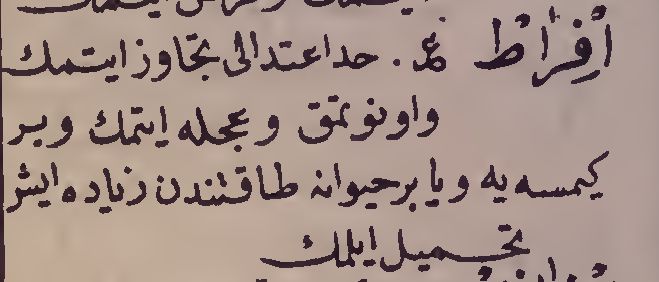 اِفْرَاطْ ع. حد اعتدالى تجاوز ايتمك
واونوتمق و عجله ايتمك و بر
كيمسه يه ويا بر حيوانه طاقتندن زياده ايش
تحميل ايلمك